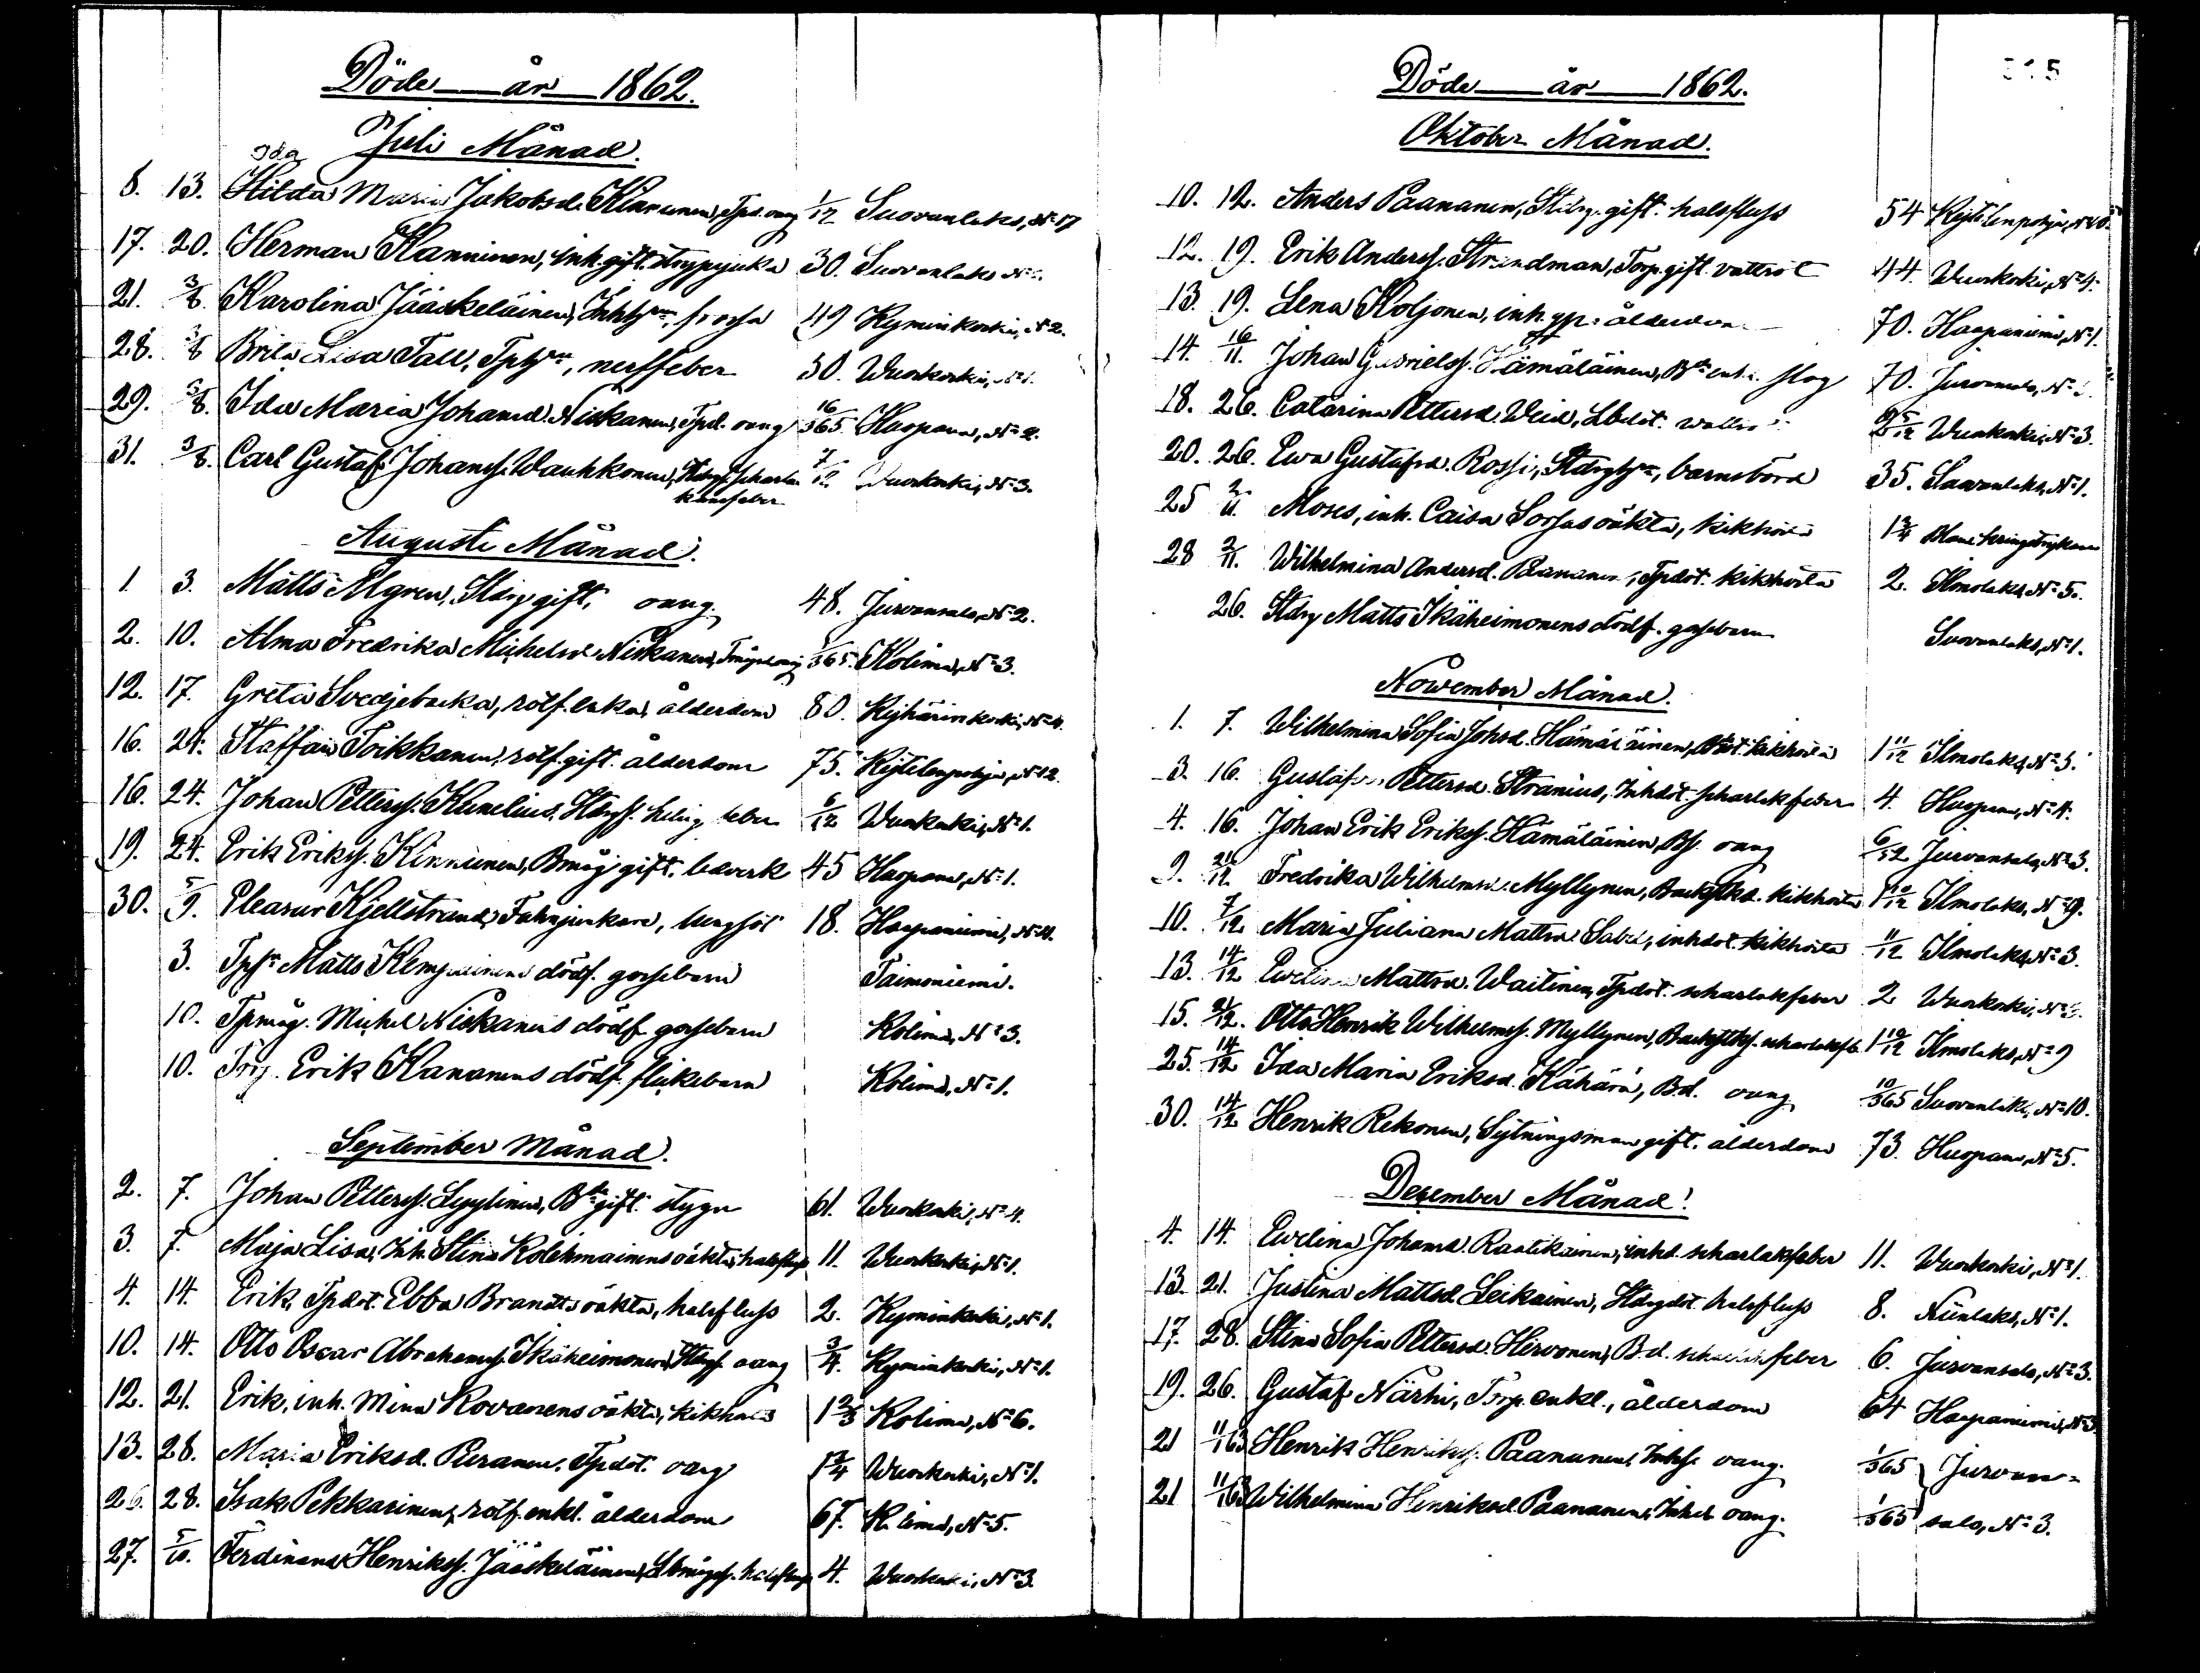 Döde år 1862.
Juli Månad.
Ida
8. 13. Hilda Maria Jakobsd. Kinnunen, Tpd. oang 1/12 Suovanlaks, No 17
17. 20. Herman Kanninen, inh. gift. strypsjuka 30. Suovanlaks No
21. 3/8 Karolina Jääskeläinen, Inhhu, frossa 49 Kyminkoski, No 2.
28. 3/8 Brita Lisa Tall, Tphu, nerffeber 30. Wuoskoski, No 1.
29. 3/8. Ida Maria Johansd. Niskanen, Tpd. oang 16/365. Huopana, No 2.
31. 3/8. Carl Gustaf Johanss. Wauhkonen, Stdrgs. scharla- 7/12 Wuoskoski, No 3.
kansfeber
Augusti Månad.
1. 3. Matts Elgren, Stdrg gift, oang. 48. Jurvansalo, No 2.
2. 10. Alma Fredrika Michelsd. Niskanen, oang 1/365. Kolima, No 3.
12. 17. Greta Svedjebacka, rotf. enka, ålderdom 80. Keihärinkoski, No 4.
16. 24. Staffan Toikkanen, rotf. gift. ålderdom 75. Keitilenpohja, No 12
16. 24. Johan Petterss. Kumelius, Stdrgs. hetsig feber 6/12 Wuoskoski, No 1.
19. 24. Erik Erikss. Kinnunen, Bmåg gift. ledverk 45 Huopana, No 1.
30. 5/9. Pleasur Kjellstrand, Fahnjunkare, lungsot 18. Haapaniemi, No 4.
3. Tps Matts Kemppainens dödf. gossebarn Taimoniemi.
10. Tpmåg. Michel Niskanens dödf. gossebarn Kolima, No 3.
10. Trp. Erik Kananens dödf. flickebarn Kolima, No 1.
September Månad.
2. 7. Johan Petterss. Leppänen, Bde gift. stygn 61. Wuoskoski, No 4.
3. 7. Maja Lisa, Inh. Stina Kolehmainens oäkta, halsfluss 11. Wuoskoski, No 1.
4. 14. Erik, Tpdot. Ebba Brandts oäkta, halsfluss 2. Kyminkoski, No 1.
10. 14. Otto Oscar Abrahamss. Ikäheimonen, Stdrgs. oang 3/4. Kyminkoski, No 1.
12. 21. Erik, inh. Mina Kovanens oäkta, kikhosta 1 2/3 Kolima, No 6.
13. 28. Maria Eriksd. Piiranen, Tpdot. oang 1 3/4 Wuoskoski, No 1.
26. 28. Isak Pekkarinen, rotf. enkl. ålderdom 67. Kolima, No 5.
27. 5/10. Ferdinand Henrikss. Jääskeläinen, halsfluss 4. Wuoskoski, No 3.
Döde år 1862.
Oktober Månad.
10. 12. Anders Paananen, Stdrg. gift. halsfluss 54 Keitilenpohja, No
12. 19. Erik Anderss. Strandman, Torp. gift. vattsot 44. Wuoskoski, No 4.
13. 19. Lena Koljonen, inh. ålderdom 70. Haapaniemi, No 1.
14. 16/11. Johan Gabrielss. Hämäläinen, Bde enkl. slag 70. Jurvansalo, No
18. 26. Catarina Pettersd. Weid, vattsot 2 5/12 Wuoskoski, No 3.
20. 26. Ewa Gustafsd. Rossi, Stdrghu, barnsbörd 35. Suovanlaks, No 1.
25 2/11. Moses, inh. Caisa Sorsas oäkta, kikhosta 1 3/4
28 2/11. Wilhelmina Andersd. Paananen, Tpdot. kikhosta 2. Ilmolaks, No 5.
26. Stdrg Matts Ikäheimonens dödf. gossebarn Suovanlaks, No 1.
November Månad.
1. 7. Wilhelmina Sofia Johsd. Hämäläinen, Bdot. kikhosta 1 11/12 Ilmolaks, No 5.
3. 16. Gustafva Pettersd. Stranius, Inhdot. scharlakfeber 4. Huopana, No 4.
4. 16. Johan Erik Erikss. Hämäläinen, Bs. oang 6/52 Jurvansalo, No 3.
9. Fredrika Wilhelmsd. Myllynen, kikhosta 1 10/12 Ilmolaks, No 9.
10. 7/12. Maria Juliana Mattsd. inhdot. kikhosta 11/12 Ilmolaks, No 3.
13. 14/12 Evelina Mattsd. Waitinen, Tpdot. scharlakfeber 2 Wuoskoski, No
15. Otto Henrik Wilhelmss. Myllynen, scharlaksfb. 1 10/12 Ilmolaks, No 9
25. 14/12 Ida Maria Eriksd. Kähärä, Bd. oang 10/365 Suovanlaks, No 10.
30. 14/12 Henrik Rekonen, Sytningsman gift. ålderdom 73. Huopana, No 5.
Desember Månad!
4. 14. Evelina Johansd. Raatikainen, inhd. scharlaksfeber 11. Wuoskoski, No 1.
13. 21. Justina Mattsd. Leikainen, Stdrgdot. halsfluss 8. Niinlaks, No 1.
17. 28. Stina Sofia Pettersd. Hirvonen, B.d. scharlakfeber 6. Jurvansalo, No 3.
19. 26. Gustaf Närhi, Torp. enkl., ålderdom 64 Haapaniemi, No 3
21 11/1 63 Henrik Henrikss. Paananen, Inhs. oang. 1/365 Jurvan=
21 11/1 63 Wilhelmina Henriksd. Paananen, Inhd. oang. 1/365 salo, No 3.